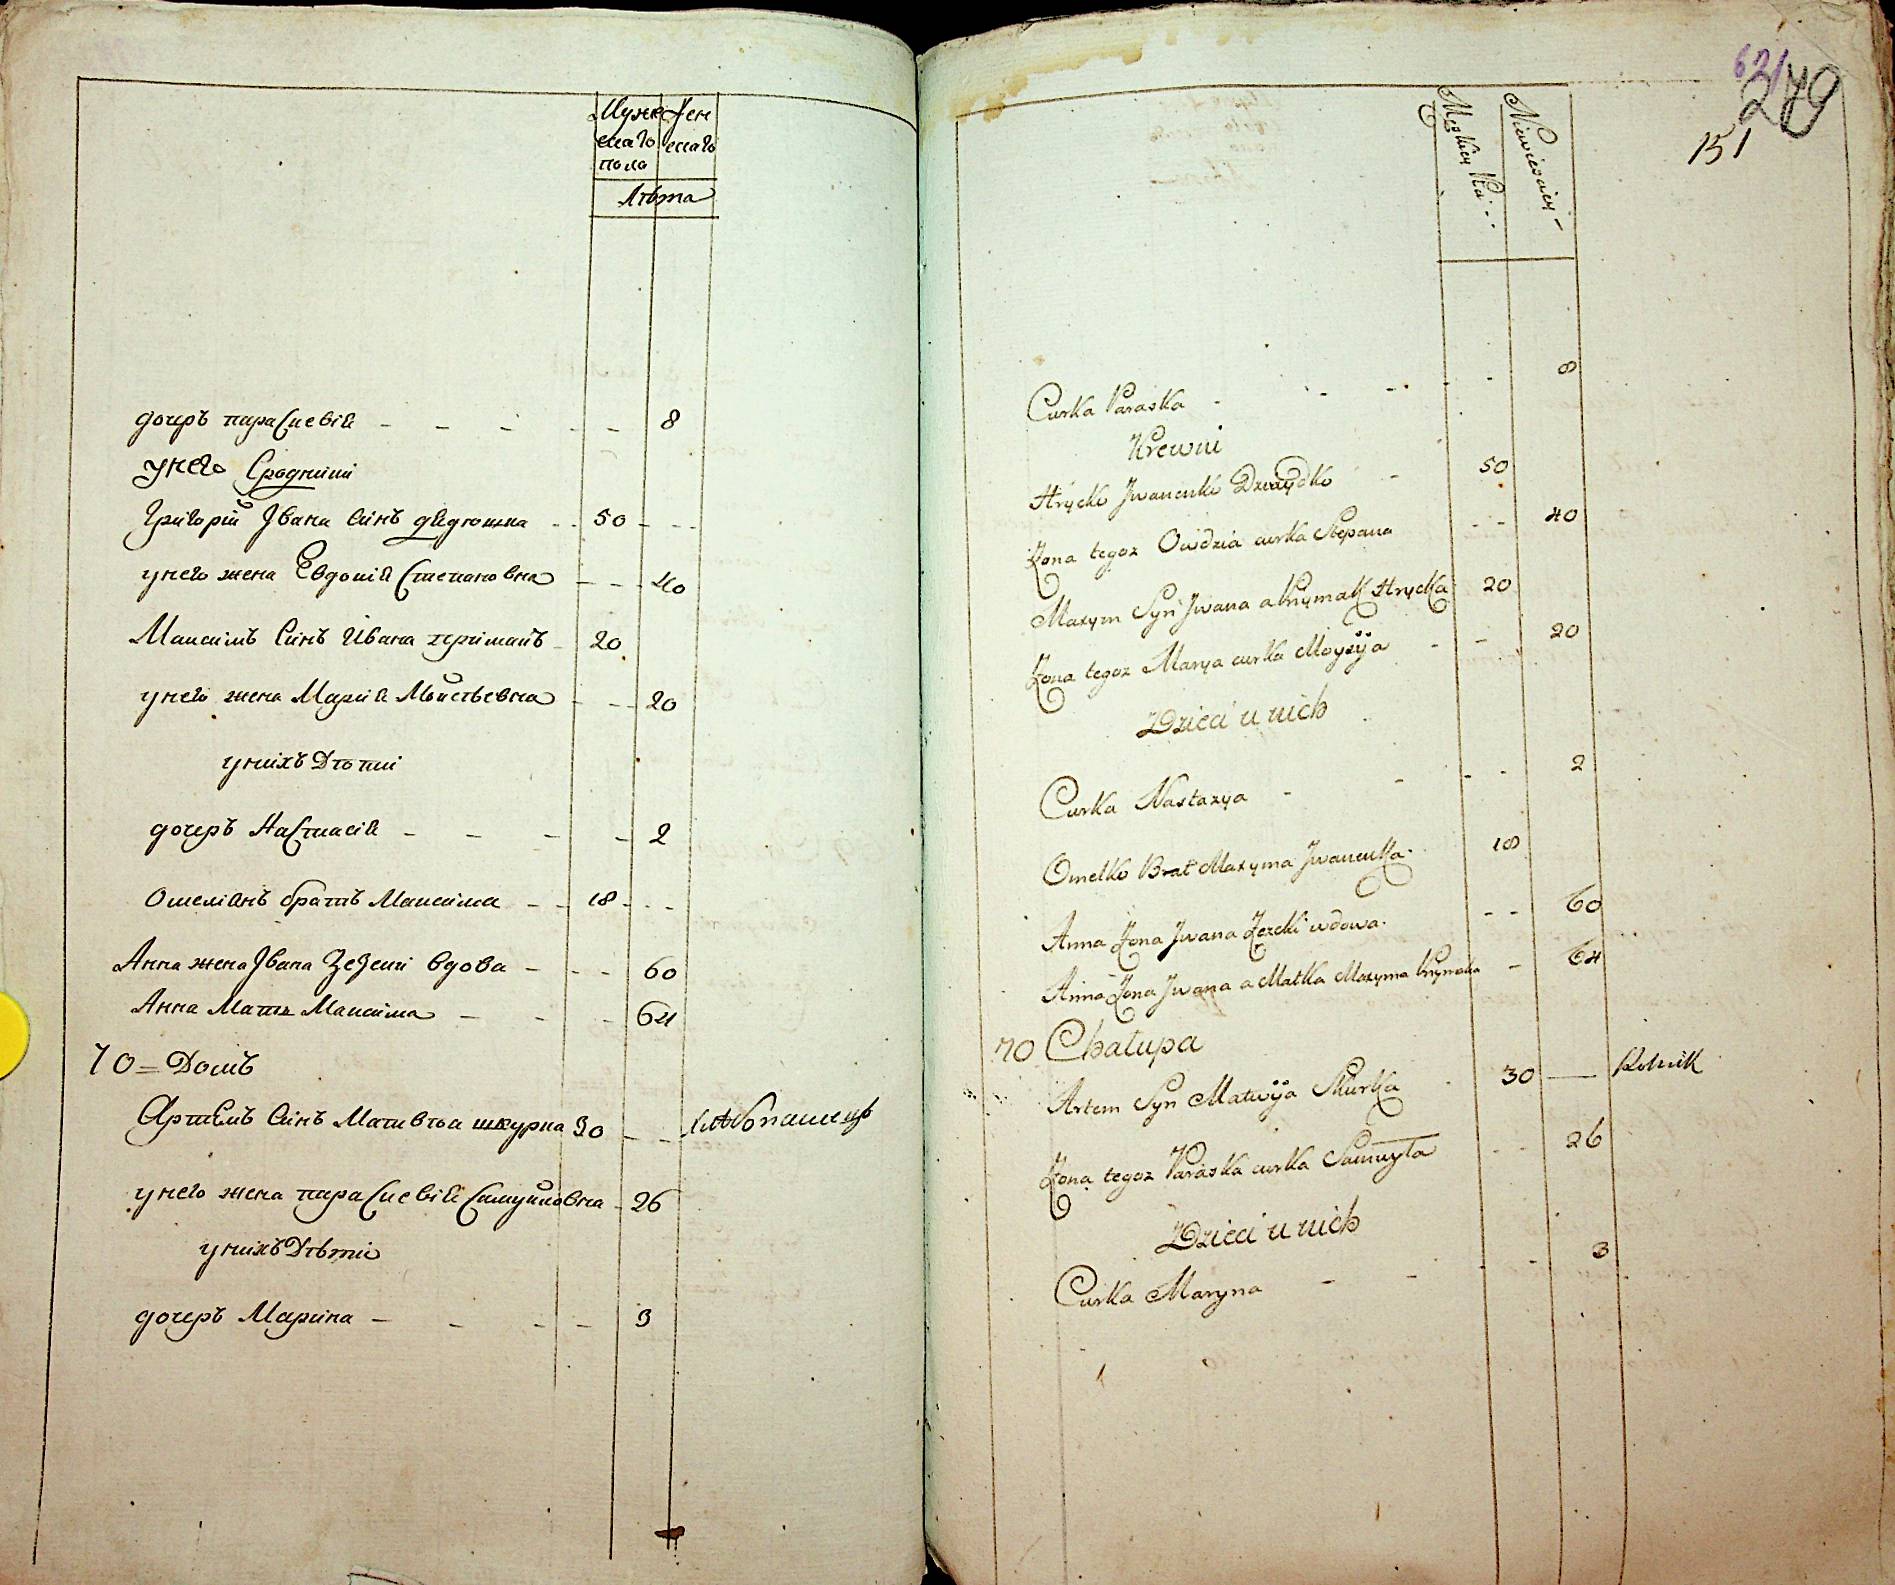 Мужескаго пола
Женскаго
Лѣта
дочеръ параскевія - - - - - 8
унего Сродники
Григорій Івана Синъ дядюшка - - 50 - - -
унего жена Евдокія Степановна - - - 40
Максимъ Синъ Ивана - 20
унего жена Марія Мойсѣевна - - - 20
унихъ Дѣтки
дочеръ Настасія - - - - 2
Омелянъ братъ Максима - - 18 - - -
Анна жена Івана Зезеки вдова - - - 60
Анна Мать Максима - - - 64
70 = Домъ
Артемъ Синъ Матвѣя шкурка 30 - - хлѣбопашецъ
унего жена параскевія Самуйловна - 26
унихъ Дѣтки
дочеръ Марина - - - - 3
62/
279
151
Męskiey Płci
Niewieściey -
Curka Paraska - - - - - 8
Krewni
Hrycko Jwanenko - 50
Żona tegoz Owdzia curka Stepana - - 40
Maxym Syn Jwana a Prymak Hrycka 20
Żona tegoz Marya curka Moyżyja - - 20
Dzieci u nich
Curka Nastazya - - - - 2
Omelko Brat Maxyma Jwanenka - 18
Anna Żona Jwana Zezeki wdowa - - - 60
Anna Żona Jwana a Matka Maxyma Prymaka - 64
70 Chałupa
Artem Syn Matwija Skurka - 30 — Rolnik
Żona tegoz Paraska curka Samuyła - - 26
Dzieci u nich
Curka Maryna - - - - 3